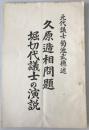 北代議士菊池武徳述
久原逓相問題
堀切代議士の演説